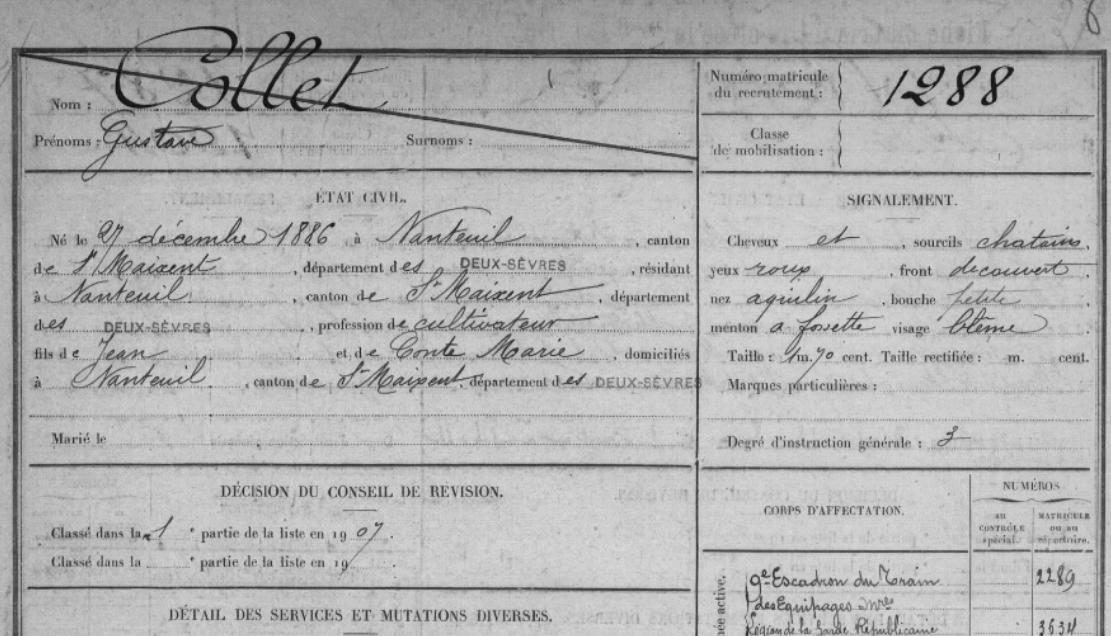 Nom : Collet
Prénoms : Gustave Surnoms :
Numéro matricule
du recrutement : 1288
Classe
de mobilisation :
ÉTAT CIVIL.
Né le 27 décembre 1886, à Nanteuil, canton
de St Maixent, département des DEUX-SÈVRES, résidant
à Nanteuil, canton de St Maixent, département
des DEUX-SÈVRES, profession de cultivateur
fils de Jean et de Conte Marie, domiciliés
à Nanteuil, canton de St Maixent, département des DEUX-SÈVRES
Marié le
SIGNALEMENT.
Cheveux et, sourcils chatains,
yeux roux, front decouvert,
nez aquilin, bouche petite,
menton a fossette visage blême.
Taille : 1 m. 70 cent. Taille rectifiée : m. cent.
Marques particulières :
Degré d'instruction générale : 3
DÉCISION DU CONSEIL DE REVISION.
Classé dans la 1 e partie de la liste en 1907.
Classé dans la e partie de la liste en 19 .
DÉTAIL DES SERVICES ET MUTATIONS DIVERSES.
CORPS D'AFFECTATION.
NUMÉROS
au
CONTRÔLE
spécial.
MATRICULE
ou au
répertoire.
9e Escadron du Train 2289
des Equipages Mres
Légion de la Garde Républicaine 3534